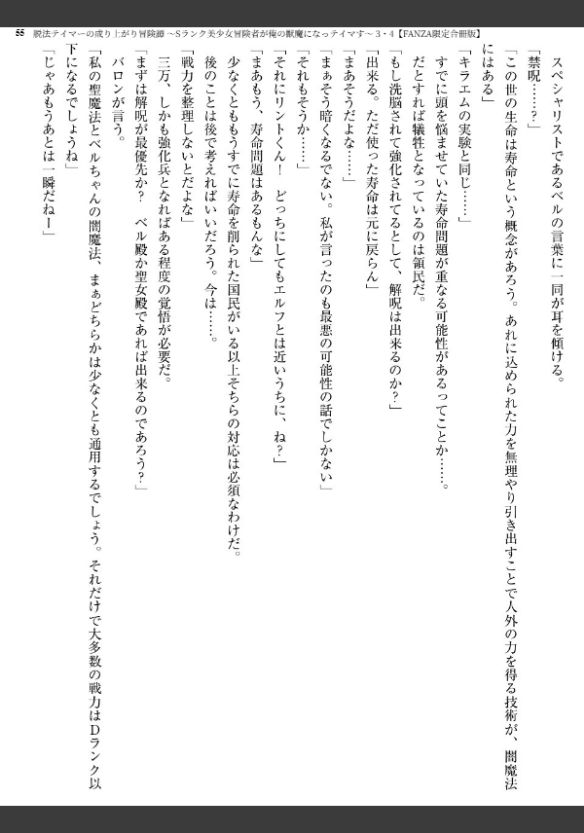 55 脱法テイマーの成り上がり冒険譚 ～Sランク美少女冒険者が俺の獣魔になっテイマす～ 3・4【FANZA限定合冊版】
　スペシャリストであるベルの言葉に一同が耳を傾ける。
「禁呪……？」
「この世の生命は寿命という概念があろう。あれに込められた力を無理やり引き出すことで人外の力を得る技術が、闇魔法
にはある」
「キラエムの実験と同じ……」
　すでに頭を悩ませていた寿命問題が重なる可能性があるってことか……。
　だとすれば犠牲となっているのは領民だ。
「もし洗脳されて強化されてるとして、解呪は出来るのか？」
「出来る。ただ使った寿命は元に戻らん」
「まあそうだよな……」
「まぁそう暗くなるでない。私が言ったのも最悪の可能性の話でしかない」
「それもそうか……」
「それにリントくん！　どっちにしてもエルフとは近いうちに、ね？」
「まあもう、寿命問題はあるもんな」
　少なくとももうすでに寿命を削られた国民がいる以上そちらの対応は必須なわけだ。
　後のことは後で考えればいいだろう。今は……。
「戦力を整理しないとだよな」
　三万、しかも強化兵となればある程度の覚悟が必要だ。
「まずは解呪が最優先か？　ベル殿か聖女殿であれば出来るのであろう？」
　バロンが言う。
「私の聖魔法とベルちゃんの闇魔法、まぁどちらかは少なくとも通用するでしょう。それだけで大多数の戦力はDランク以
下になるでしょうね」
「じゃあもうあとは一瞬だねー」